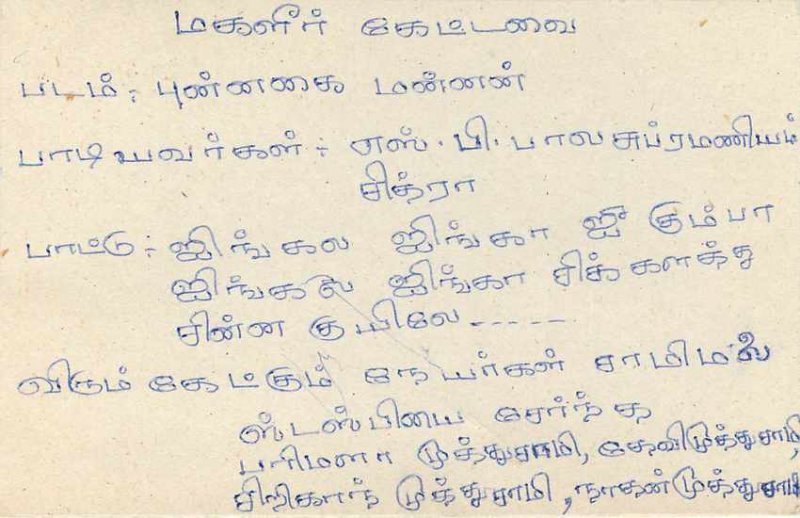 மகளிர் கேட்டவை
படம் : புன்னகை மன்னன்
பாடியவர்கள் : எஸ். பி. பாலசுப்ரமணியம்
சித்ரா
பாட்டு : ஜிங்கல ஜிங்கா ஜீ கும்பா
ஜிங்கல ஜிங்கா சிக்களத்து
சின்ன குயிலே -----
விரும் கேட்கும் நேயர்கள் சாமிமலை
சேர்ந்த
பரிமளா முத்துசாமி, தேவிமுத்துசாமி,
முத்துசாமி, நாகன்முத்துசாமி